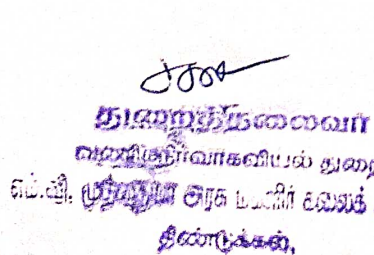 துறைத்தலைவர்
வணிகநிர்வாகவியல் துறை
எம்.வி. முத்தையா அரசு மகளிர் கலைக்
திண்டுக்கல்.